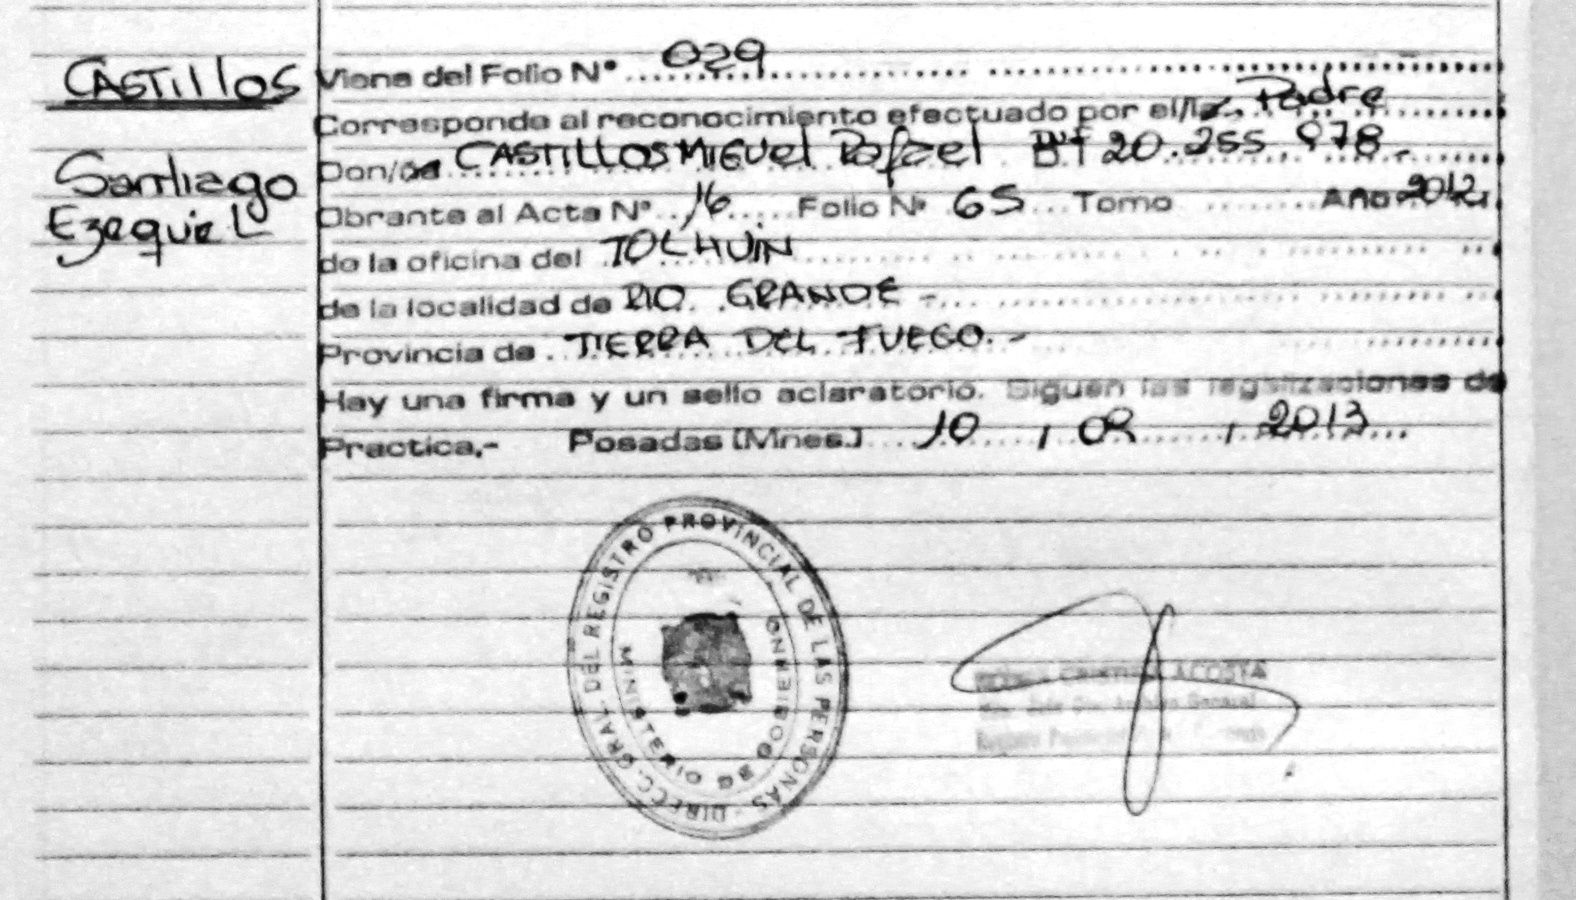 CASTILLOS
Santiago
Ezequiel
Viene del Folio Nº 029
Corresponde al reconocimiento efectuado por el/la Padre
Don/ña CASTILLOS MIGUEL Rafael 20.255.978.-
Obrante al Acta Nº 16 Folio Nº 65 Tomo Año 2012
de la oficina del TOLHUIN
de la localidad de RIO GRANDE -
Provincia de TIERRA DEL FUEGO.-
Hay una firma y un sello aclaratorio. Siguen las legalizaciones de
Practica,- Posadas (Mnes.) 10 / 09 / 2013
DIRECC. GRAL. DEL REGISTRO PROVINCIAL DE LAS PERSONAS -
MINISTERIO DE GOBIERNO
CRISTINA ACOSTA
General